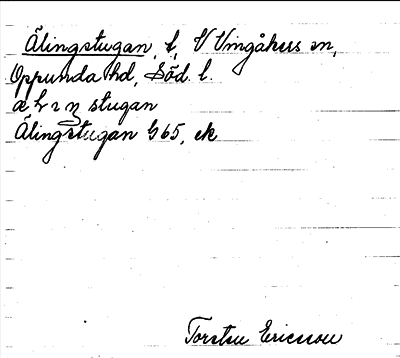 Älingstugan, t, V Vingåkers sn,
Oppunda hd, Söd. l.
stugan
Älingstugan G65, ek
Torsten Ericsson